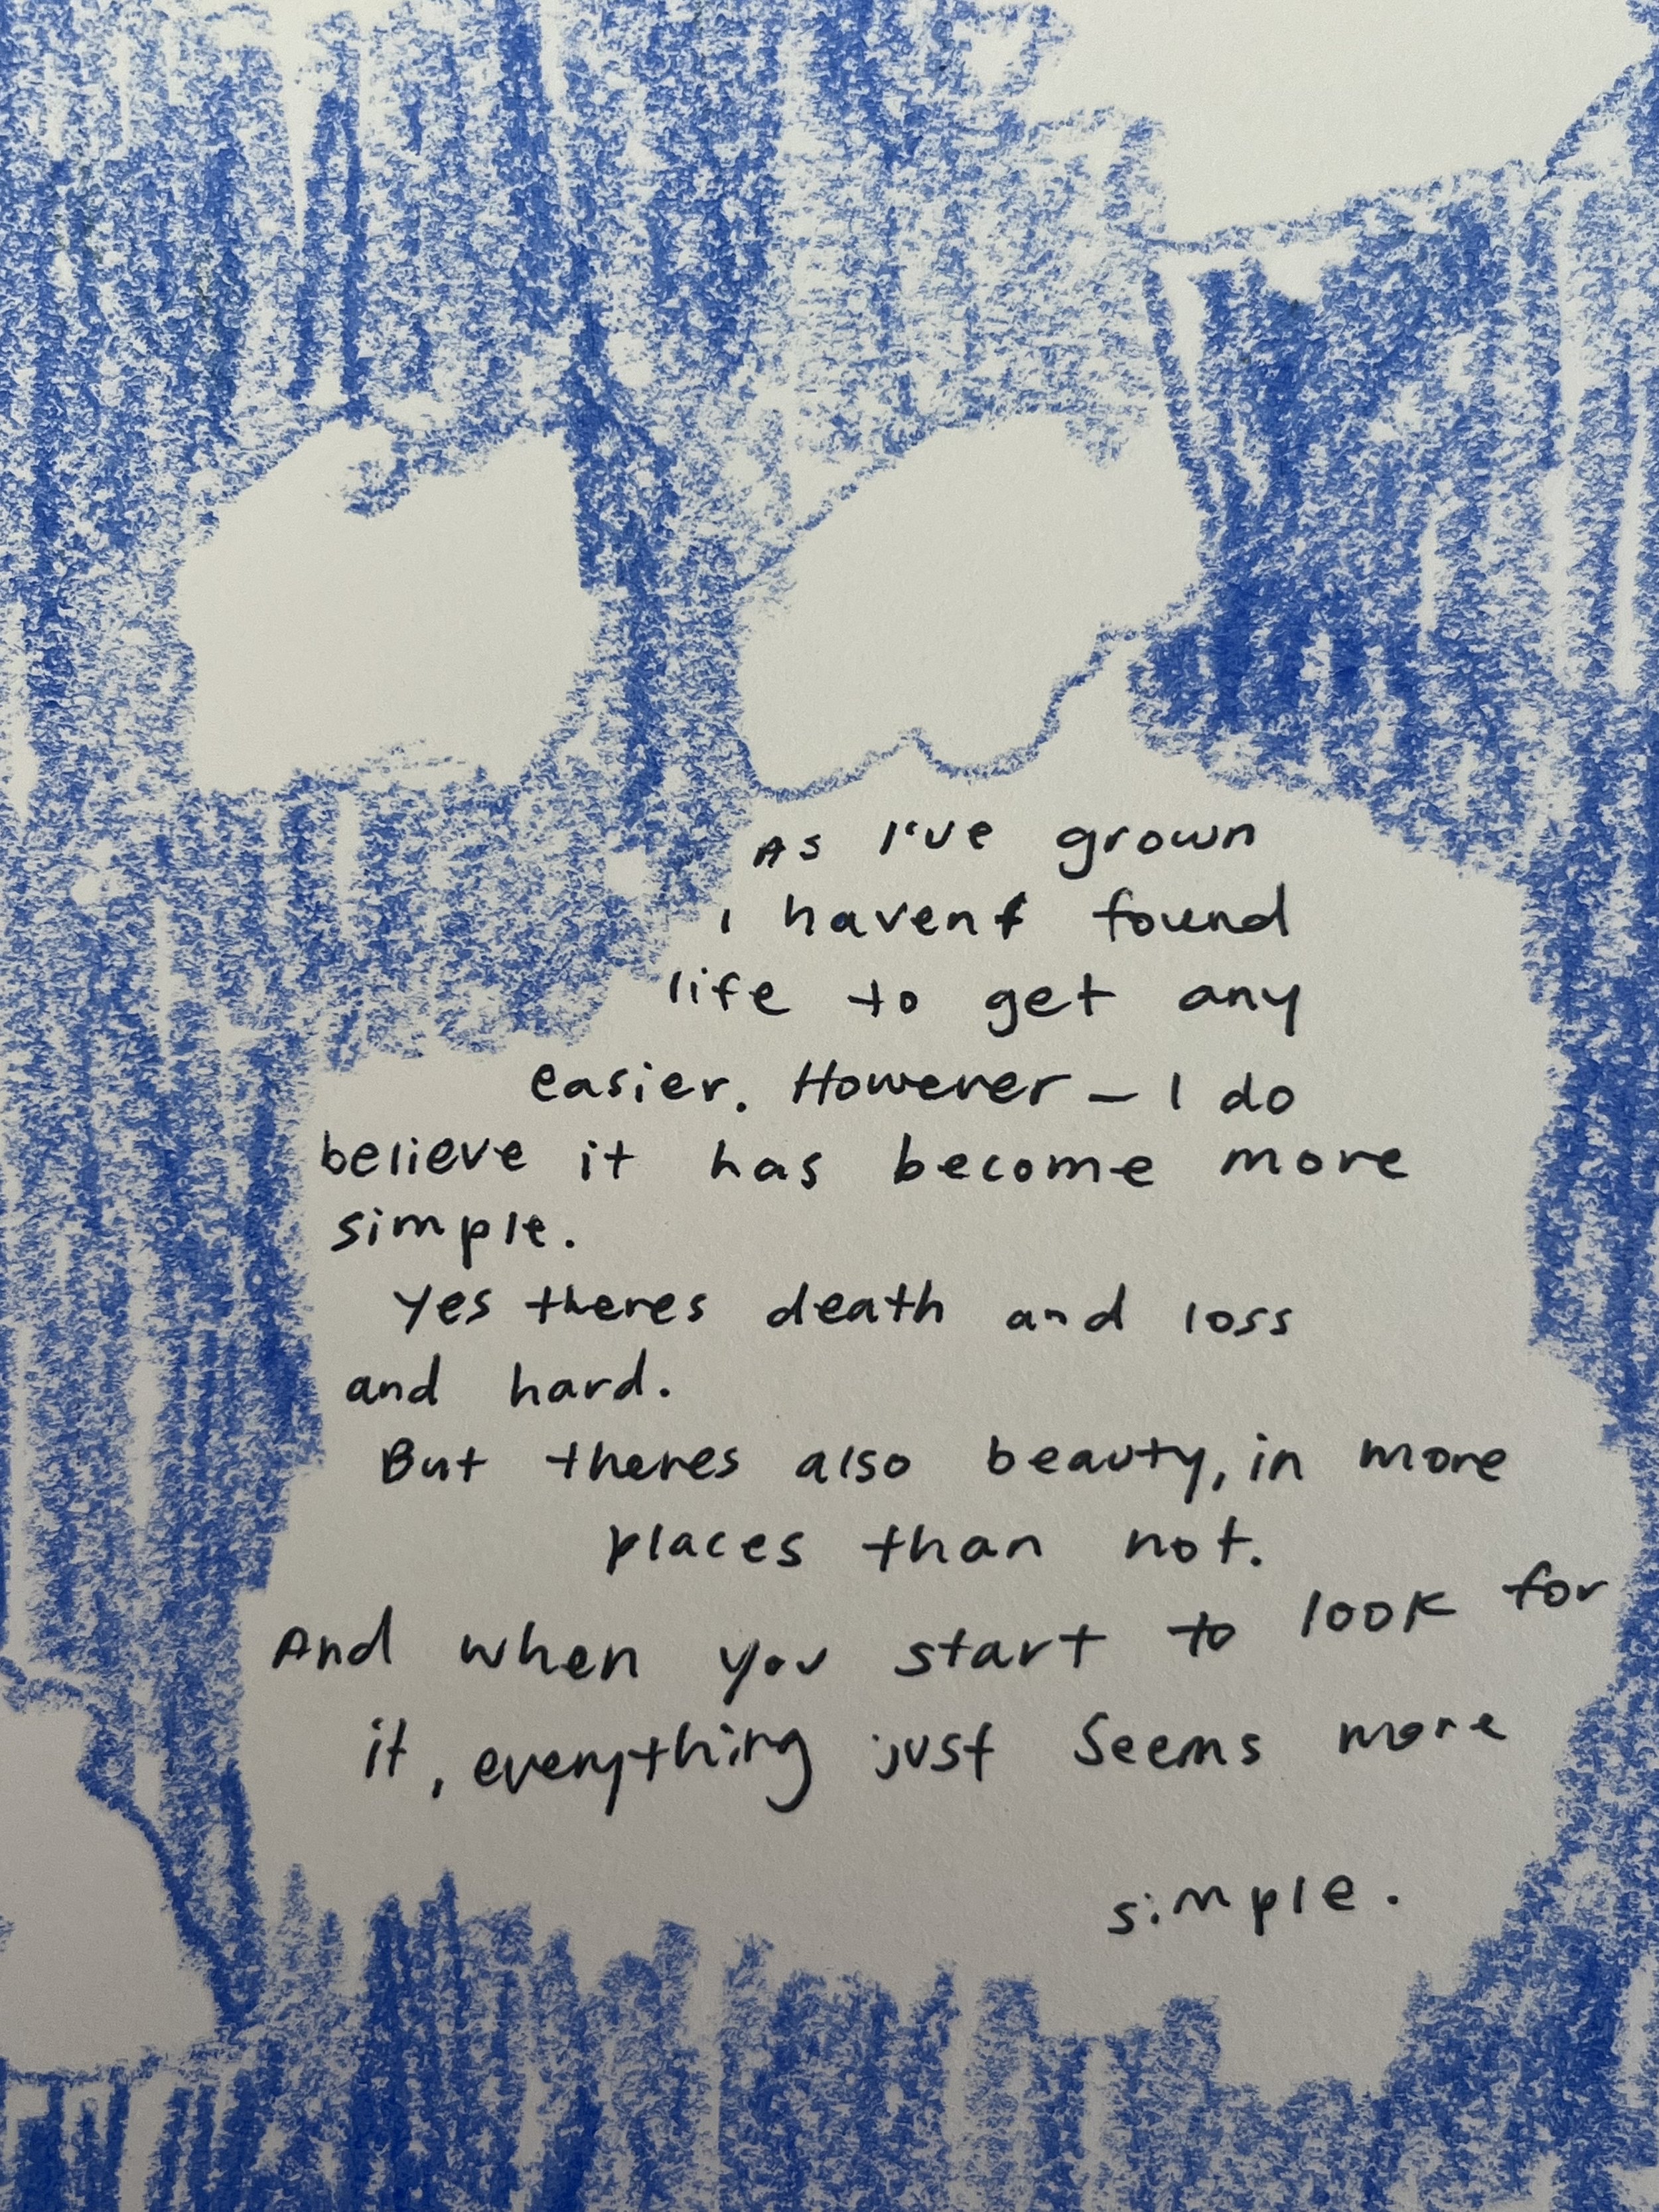 As I've grown
i havent found
life to get any
easier. However – I do
believe it has become more
simple.
Yes theres death and loss
and hard.
But theres also beauty, in more
places than not.
And when you start to look for
it, everything just seems more
simple.